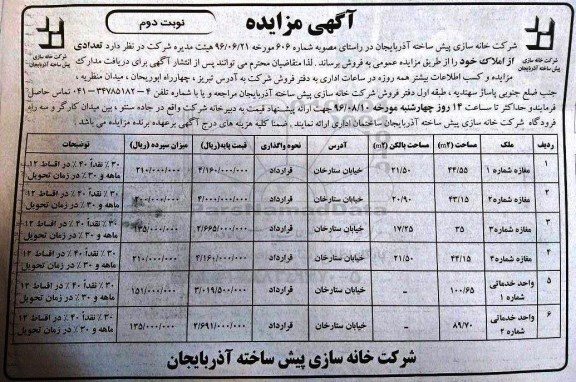 آگهی مزایده
نوبت دوم
شرکت خانه سازی
پیش ساخته آذربایجان
شرکت خانه سازی
پیش ساخته آذربایجان
شرکت خانه سازی پیش ساخته آذربایجان در راستای مصوبه شماره ۶۰۶ مورخه ۹۶/۰۶/۲۱ هیئت مدیره شرکت در نظر دارد تعدادی
از املاک خود را از طریق مزایده عمومی به فروش برساند. لذا متقاضیان محترم می توانند پس از انتشار آگهی برای دریافت مدارک
مزایده و کسب اطلاعات بیشتر همه روزه در ساعات اداری به دفتر فروش شرکت به آدرس تبریز، چهارراه ابوریحان، میدان منظریه،
جنب ضلع جنوبی پاساژ سهندیه، طبقه اول دفتر فروش شرکت خانه سازی پیش ساخته آذربایجان مراجعه و یا با شماره تلفن ۴ - ۳۴۷۸۵۱۸۲-۰۴۱ تماس حاصل
فرمایند حداکثر تا ساعت ۱۴ روز چهارشنبه مورخه ۹۶/۰۸/۱۰ جهت ارائه پیشنهاد قیمت به دبیرخانه شرکت واقع در جاده سنتو، بین میدان کارگر و سه راه
فرودگاه شرکت خانه سازی پیش ساخته آذربایجان ساختمان اداری ارائه نمایند. ضمنا کلیه هزینه های درج آگهی برعهده برنده مزایده می باشد
ردیف ملک مساحت (m2) مساحت بالکن (m2) آدرس نحوه واگذاری قیمت پایه(ریال) میزان سپرده (ریال) توضیحات
۱ مغازه شماره ۱ ۴۴/۵۵ ۲۱/۵۰ خیابان ستارخان قرارداد ۴/۱۶۰/۰۰۰/۰۰۰ ۲۱۰/۰۰۰/۰۰۰ ۳۰ ٪ نقداً ۴۰ ٪ در اقساط ۱۲ ماهه و ۳۰ ٪ در زمان تحویل
۲ مغازه شماره۲ ۴۳/۱۵ ۲۰/۹۰ خیابان ستارخان قرارداد ۴/۰۰۰/۰۰۰/۰۰۰ ۳۰ ٪ نقداً ۴۰ ٪ در اقساط ۱۲ ماهه و ۳۰ ٪ در زمان تحویل
۳ مغازه شماره۳ ۳۵ ۱۷/۲۵ خیابان ستارخان قرارداد ۲/۶۶۵/۰۰۰/۰۰۰ ۱۳۵/۰۰۰/۰۰۰ ۳۰ ٪ نقداً ۴۰ ٪ در اقساط ۱۲ ماهه و ۳۰ ٪ در زمان تحویل
۴ مغازه شماره۴ ۴۴/۱۵ ۲۱/۵۰ خیابان ستارخان قرارداد ۴/۱۶۰/۰۰۰/۰۰۰ ۲۱۰/۰۰۰/۰۰۰ ۳۰ ٪ نقداً ۴۰ ٪ در اقساط ۱۲ ماهه و ۳۰ ٪ در زمان تحویل
۵ واحد خدماتی شماره ۱ ۱۰۰/۶۵ - خیابان ستارخان قرارداد ۳/۰۱۹/۵۰۰/۰۰۰ ۱۵۱/۰۰۰/۰۰۰ ۳۰ ٪ نقداً ۴۰ ٪ در اقساط ۱۲ ماهه و ۳۰ ٪ در زمان تحویل
۶ واحد خدماتی شماره ۲ ۸۹/۷۰ - خیابان ستارخان قرارداد ۲/۶۹۱/۰۰۰/۰۰۰ ۱۳۵/۰۰۰/۰۰۰ ۳۰ ٪ نقداً ۴۰ ٪ در اقساط ۱۲ ماهه و ۳۰ ٪ در زمان تحویل
شرکت خانه سازی پیش ساخته آذربایجان